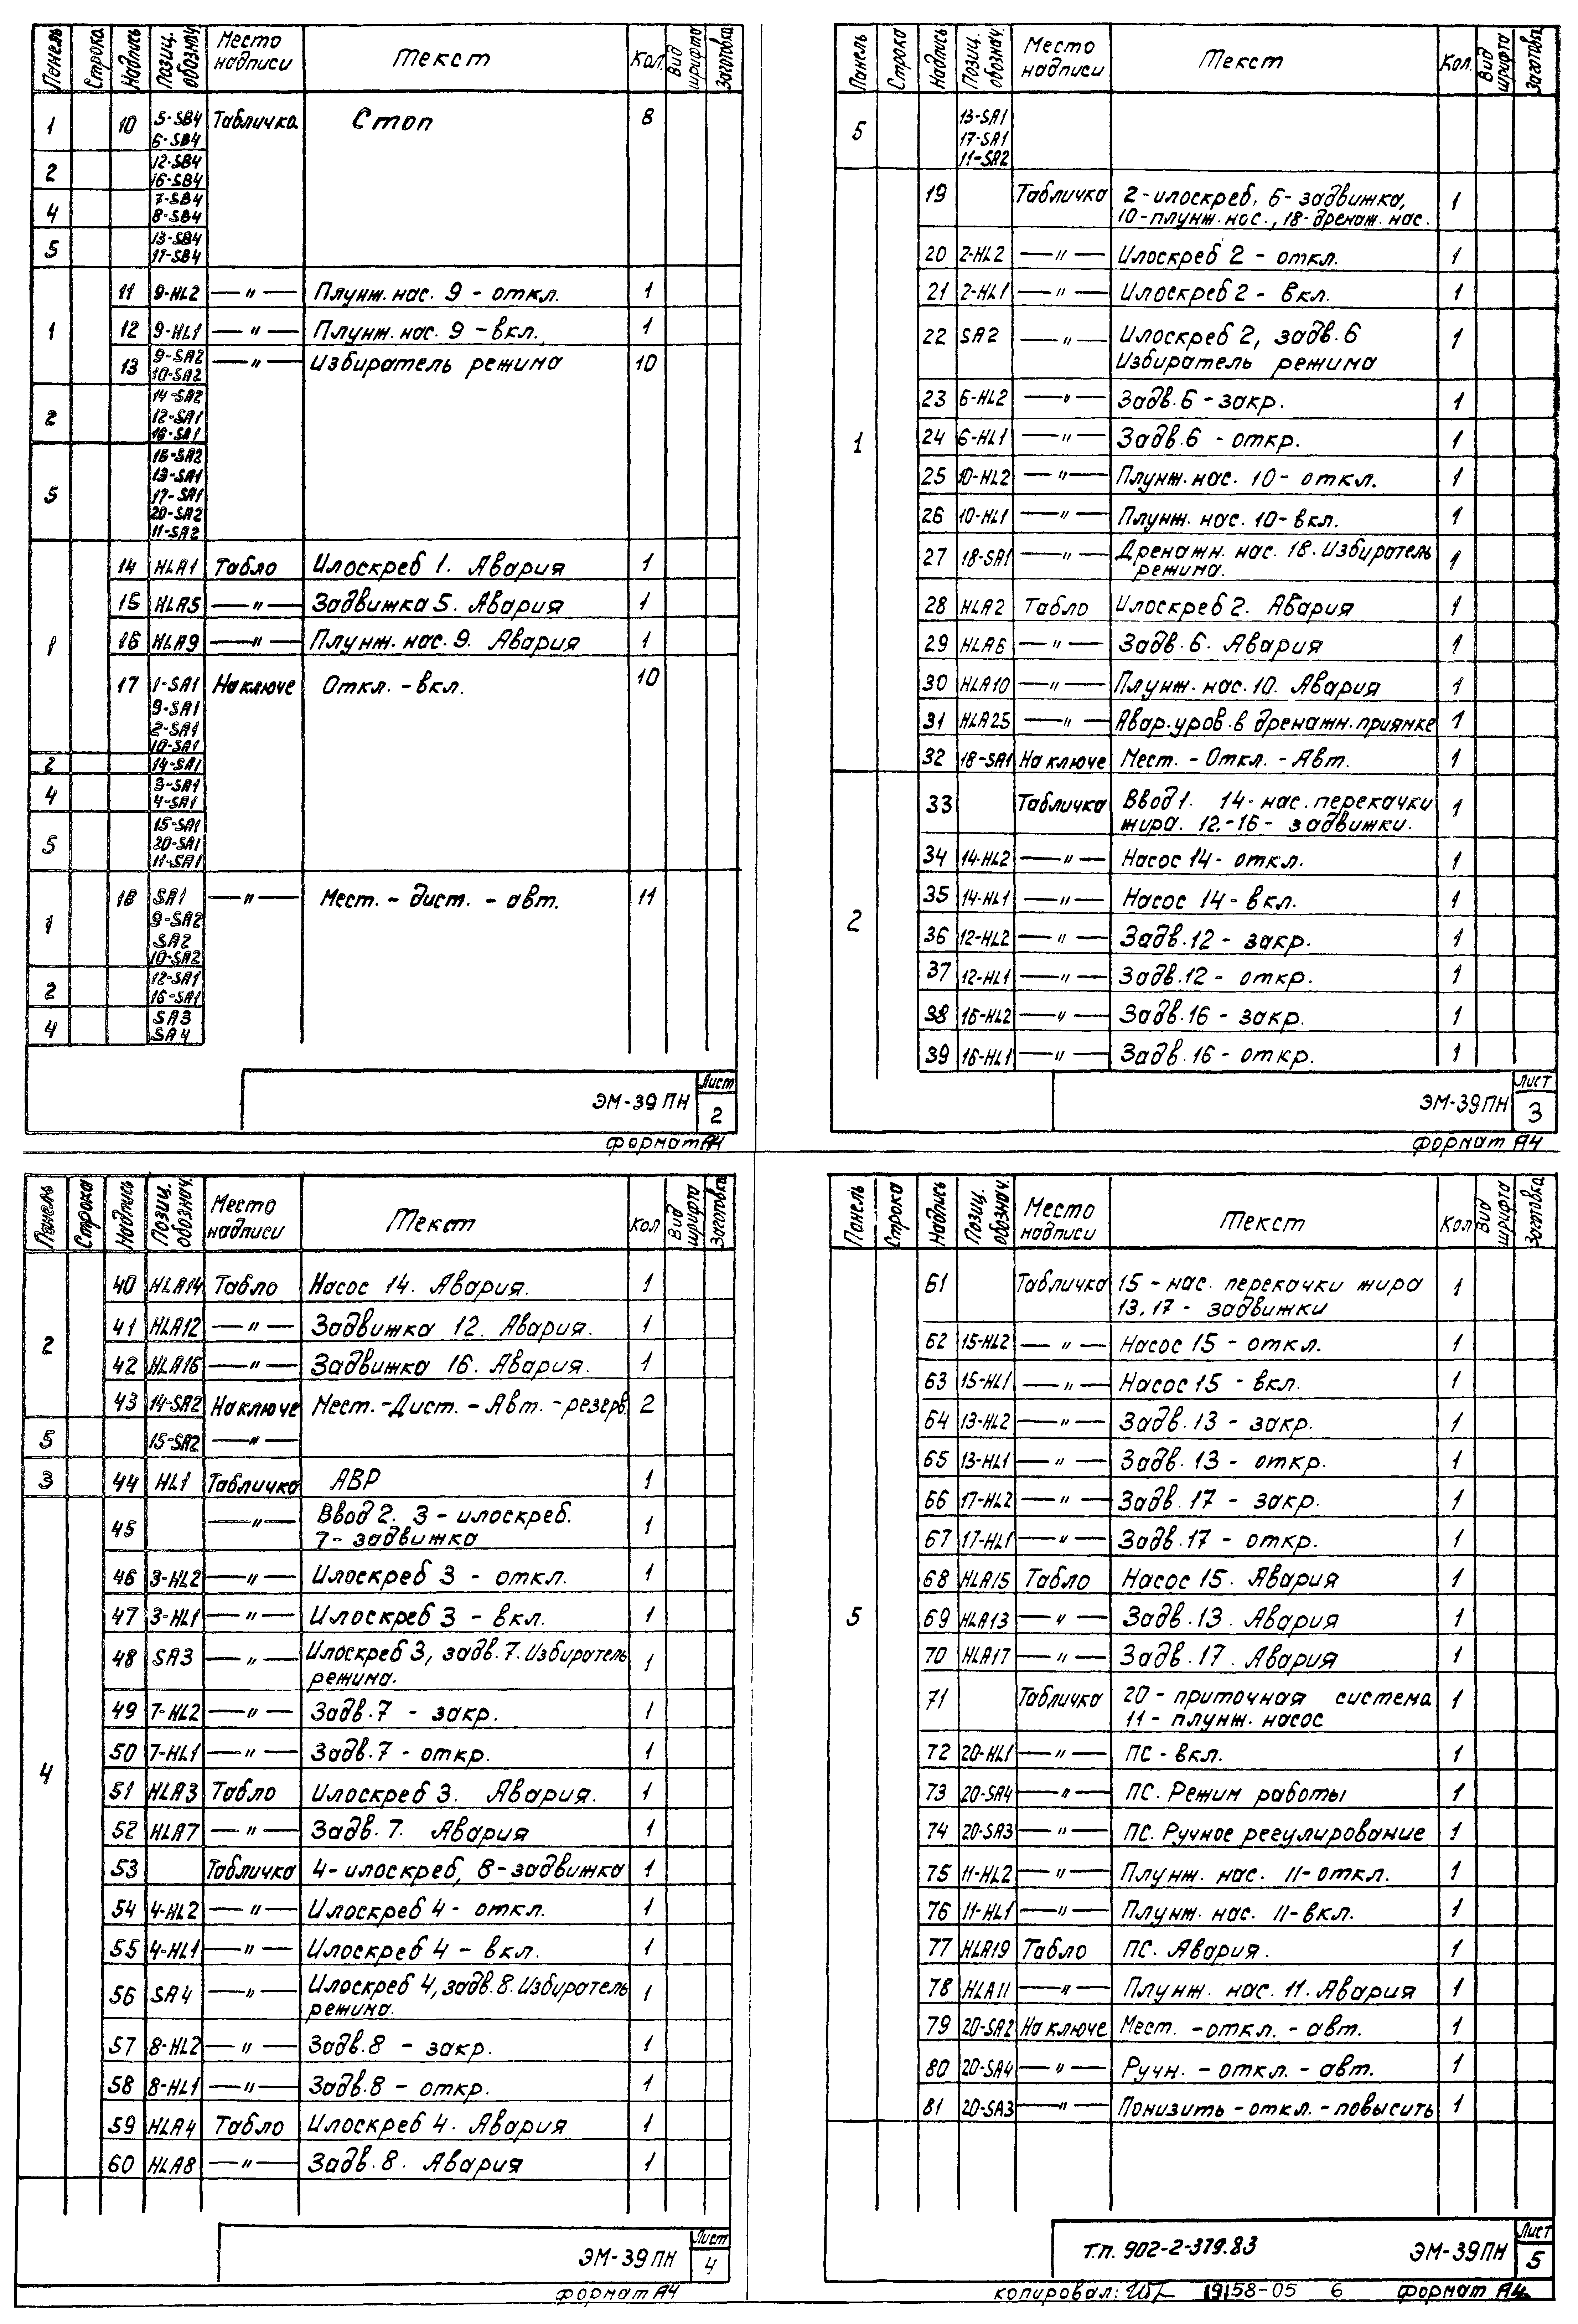 Панель Строка Надпись Позиц. обознач. Место надписи Текст Кол. Вид шрифта Заготовка
1 10 5-SB4 Табличка Стоп 8
6-SB4
2 12-SB4
16-SB4
4 7-SB4
8-SB4
5 13-SB4
17-SB4
1 11 9-HL2 —"— Плунж. нас. 9 - откл. 1
12 9-HL1 —"— Плунж. нас. 9 - вкл. 1
13 9-SA2 —"— Избиратель режима 10
10-SA2
2 14-SA2
12-SA1
16-SA1
5 15-SA2
13-SA1
17-SA1
20-SA2
11-SA2
1 14 HLA1 Табло Илоскреб 1. Авария 1
15 HLA5 —"— Задвижка 5. Авария 1
16 HLA9 —"— Плунж. нас. 9. Авария 1
17 1-SA1 На ключе Откл. - вкл. 10
9-SA1
2-SA1
10-SA1
2 14-SA1
4 3-SA1
4-SA1
5 15-SA1
20-SA1
11-SA1
1 18 SA1 —"— Мест. - дист. - авт. 11
9-SA2
SA2
10-SA2
2 12-SA1
16-SA1
4 SA3
SA4
ЭМ-39 ПН Лист 2
формат А4
Панель Строка Надпись Позиц. обознач. Место надписи Текст Кол. Вид шрифта Заготовка
5 13-SA1
17-SA1
11-SA2
1 19 Табличка 2-илоскреб, 6-задвижка, 1
10-плунж. нас., 18-дренаж. нас.
20 2-HL2 —"— Илоскреб 2 - откл. 1
21 2-HL1 —"— Илоскреб 2 - вкл. 1
22 SA2 —"— Илоскреб 2, задв. 6 1
Избиратель режима
23 6-HL2 —"— Задв. 6 - закр. 1
24 6-HL1 —"— Задв. 6 - откр. 1
25 10-HL2 —"— Плунж. нас. 10 - откл. 1
26 10-HL1 —"— Плунж. нас. 10 - вкл. 1
27 18-SA1 —"— Дренажн. нас. 18. Избиратель 1
режима.
28 HLA2 Табло Илоскреб 2. Авария 1
29 HLA6 —"— Задв. 6. Авария 1
30 HLA10 —"— Плунж. нас. 10. Авария 1
31 HLA25 —"— Авар. уров. в дренажн. приямке 1
32 18-SA1 На ключе Мест. - Откл. - Авт. 1
2 33 Табличка Ввод 1. 14-нас. перекачки 1
жира. 12,-16- задвижки.
34 14-HL2 —"— Насос 14 - откл. 1
35 14-HL1 —"— Насос 14 - вкл. 1
36 12-HL2 —"— Задв. 12 - закр. 1
37 12-HL1 —"— Задв. 12 - откр. 1
38 16-HL2 —"— Задв. 16 - закр. 1
39 16-HL1 —"— Задв. 16 - откр. 1
ЭМ-39 ПН Лист 3
формат А4
Панель Строка Надпись Позиц. обознач. Место надписи Текст Кол Вид шрифта Заготовка
2 40 HLA14 Табло Насос 14. Авария. 1
41 HLA12 —"— Задвижка 12. Авария. 1
42 HLA16 —"— Задвижка 16. Авария. 1
43 14-SA2 На ключе Мест. - Дист. - Авт. - резерв. 2
5 15-SA2 —"—
3 44 HL1 Табличка АВР 1
4 45 —"— Ввод 2. 3 - илоскреб. 1
7 - задвижка
46 3-HL2 —"— Илоскреб 3 - откл. 1
47 3-HL1 —"— Илоскреб 3 - вкл. 1
48 SA3 —"— Илоскреб 3, задв. 7. Избиратель 1
режима.
49 7-HL2 —"— Задв. 7 - закр. 1
50 7-HL1 —"— Задв. 7 - откр. 1
51 HLA3 Табло Илоскреб 3. Авария. 1
52 HLA7 —"— Задв. 7. Авария 1
53 Табличка 4-илоскреб, 8-задвижка 1
54 4-HL2 —"— Илоскреб 4 - откл. 1
55 4-HL1 —"— Илоскреб 4 - вкл. 1
56 SA4 —"— Илоскреб 4, задв. 8. Избиратель 1
режима.
57 8-HL2 —"— Задв. 8 - закр. 1
58 8-HL1 —"— Задв. 8 - откр. 1
59 HLA4 Табло Илоскреб 4. Авария 1
60 HLA8 —"— Задв. 8. Авария 1
ЭМ-39 ПН Лист 4
формат А4
Панель Строка Надпись Позиц. обознач. Место надписи Текст Кол Вид шрифта Заготовка
5 61 Табличка 15 - нас. перекачки жира 1
13, 17 - задвижки
62 15-HL2 —"— Насос 15 - откл. 1
63 15-HL1 —"— Насос 15 - вкл. 1
64 13-HL2 —"— Задв. 13 - закр. 1
65 13-HL1 —"— Задв. 13 - откр. 1
66 17-HL2 —"— Задв. 17 - закр. 1
67 17-HL1 —"— Задв. 17 - откр. 1
68 HLA15 Табло Насос 15. Авария 1
69 HLA13 —"— Задв. 13. Авария 1
70 HLA17 —"— Задв. 17. Авария 1
71 Табличка 20 - приточная система 1
11 - плунж. насос
72 20-HL1 —"— ПС - вкл. 1
73 20-SA4 —"— ПС. Режим работы 1
74 20-SA3 —"— ПС. Ручное регулирование 1
75 11-HL2 —"— Плунж. нас. 11 - откл. 1
76 11-HL1 —"— Плунж. нас. 11 - вкл. 1
77 HLA19 Табло ПС. Авария. 1
78 HLA11 —"— Плунж. нас. 11. Авария 1
79 20-SA2 На ключе Мест. - откл. - авт. 1
80 20-SA4 —"— Ручн. - откл. - авт. 1
81 20-SA3 —"— Понизить - откл. - повысить 1
Т.п. 902-2-379.83 ЭМ-39 ПН Лист 5
копировал: 19158-05 6 формат А4